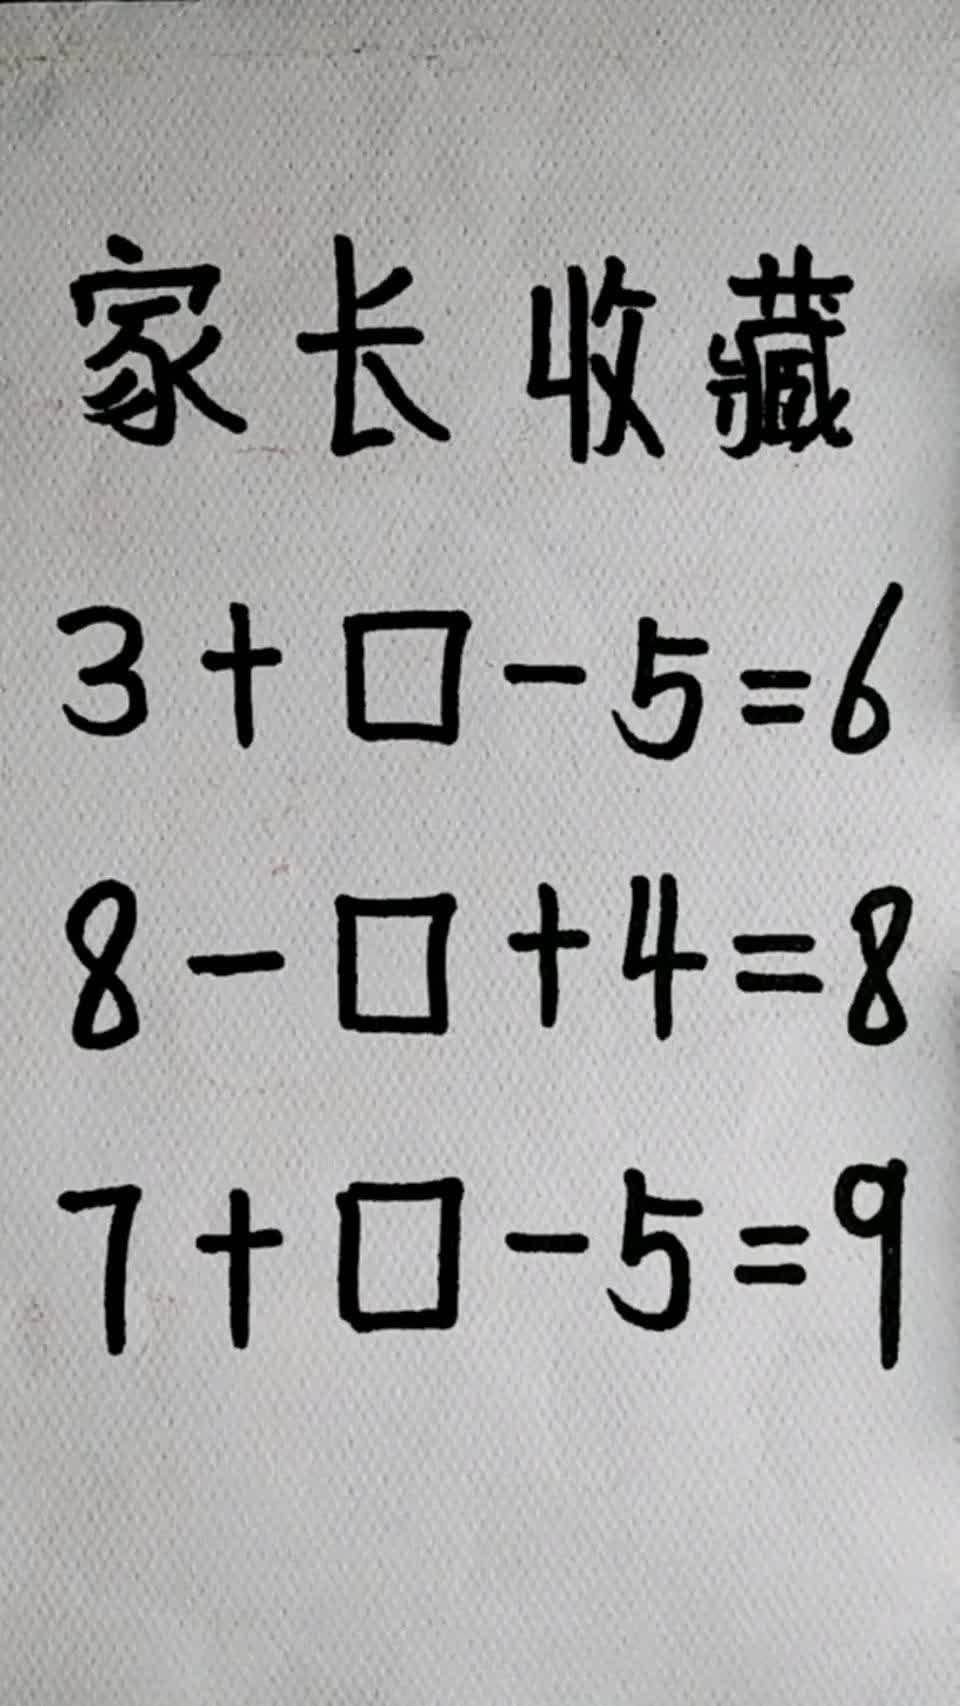 家长收藏
3+□-5=6
8-□+4=8
7+□-5=9